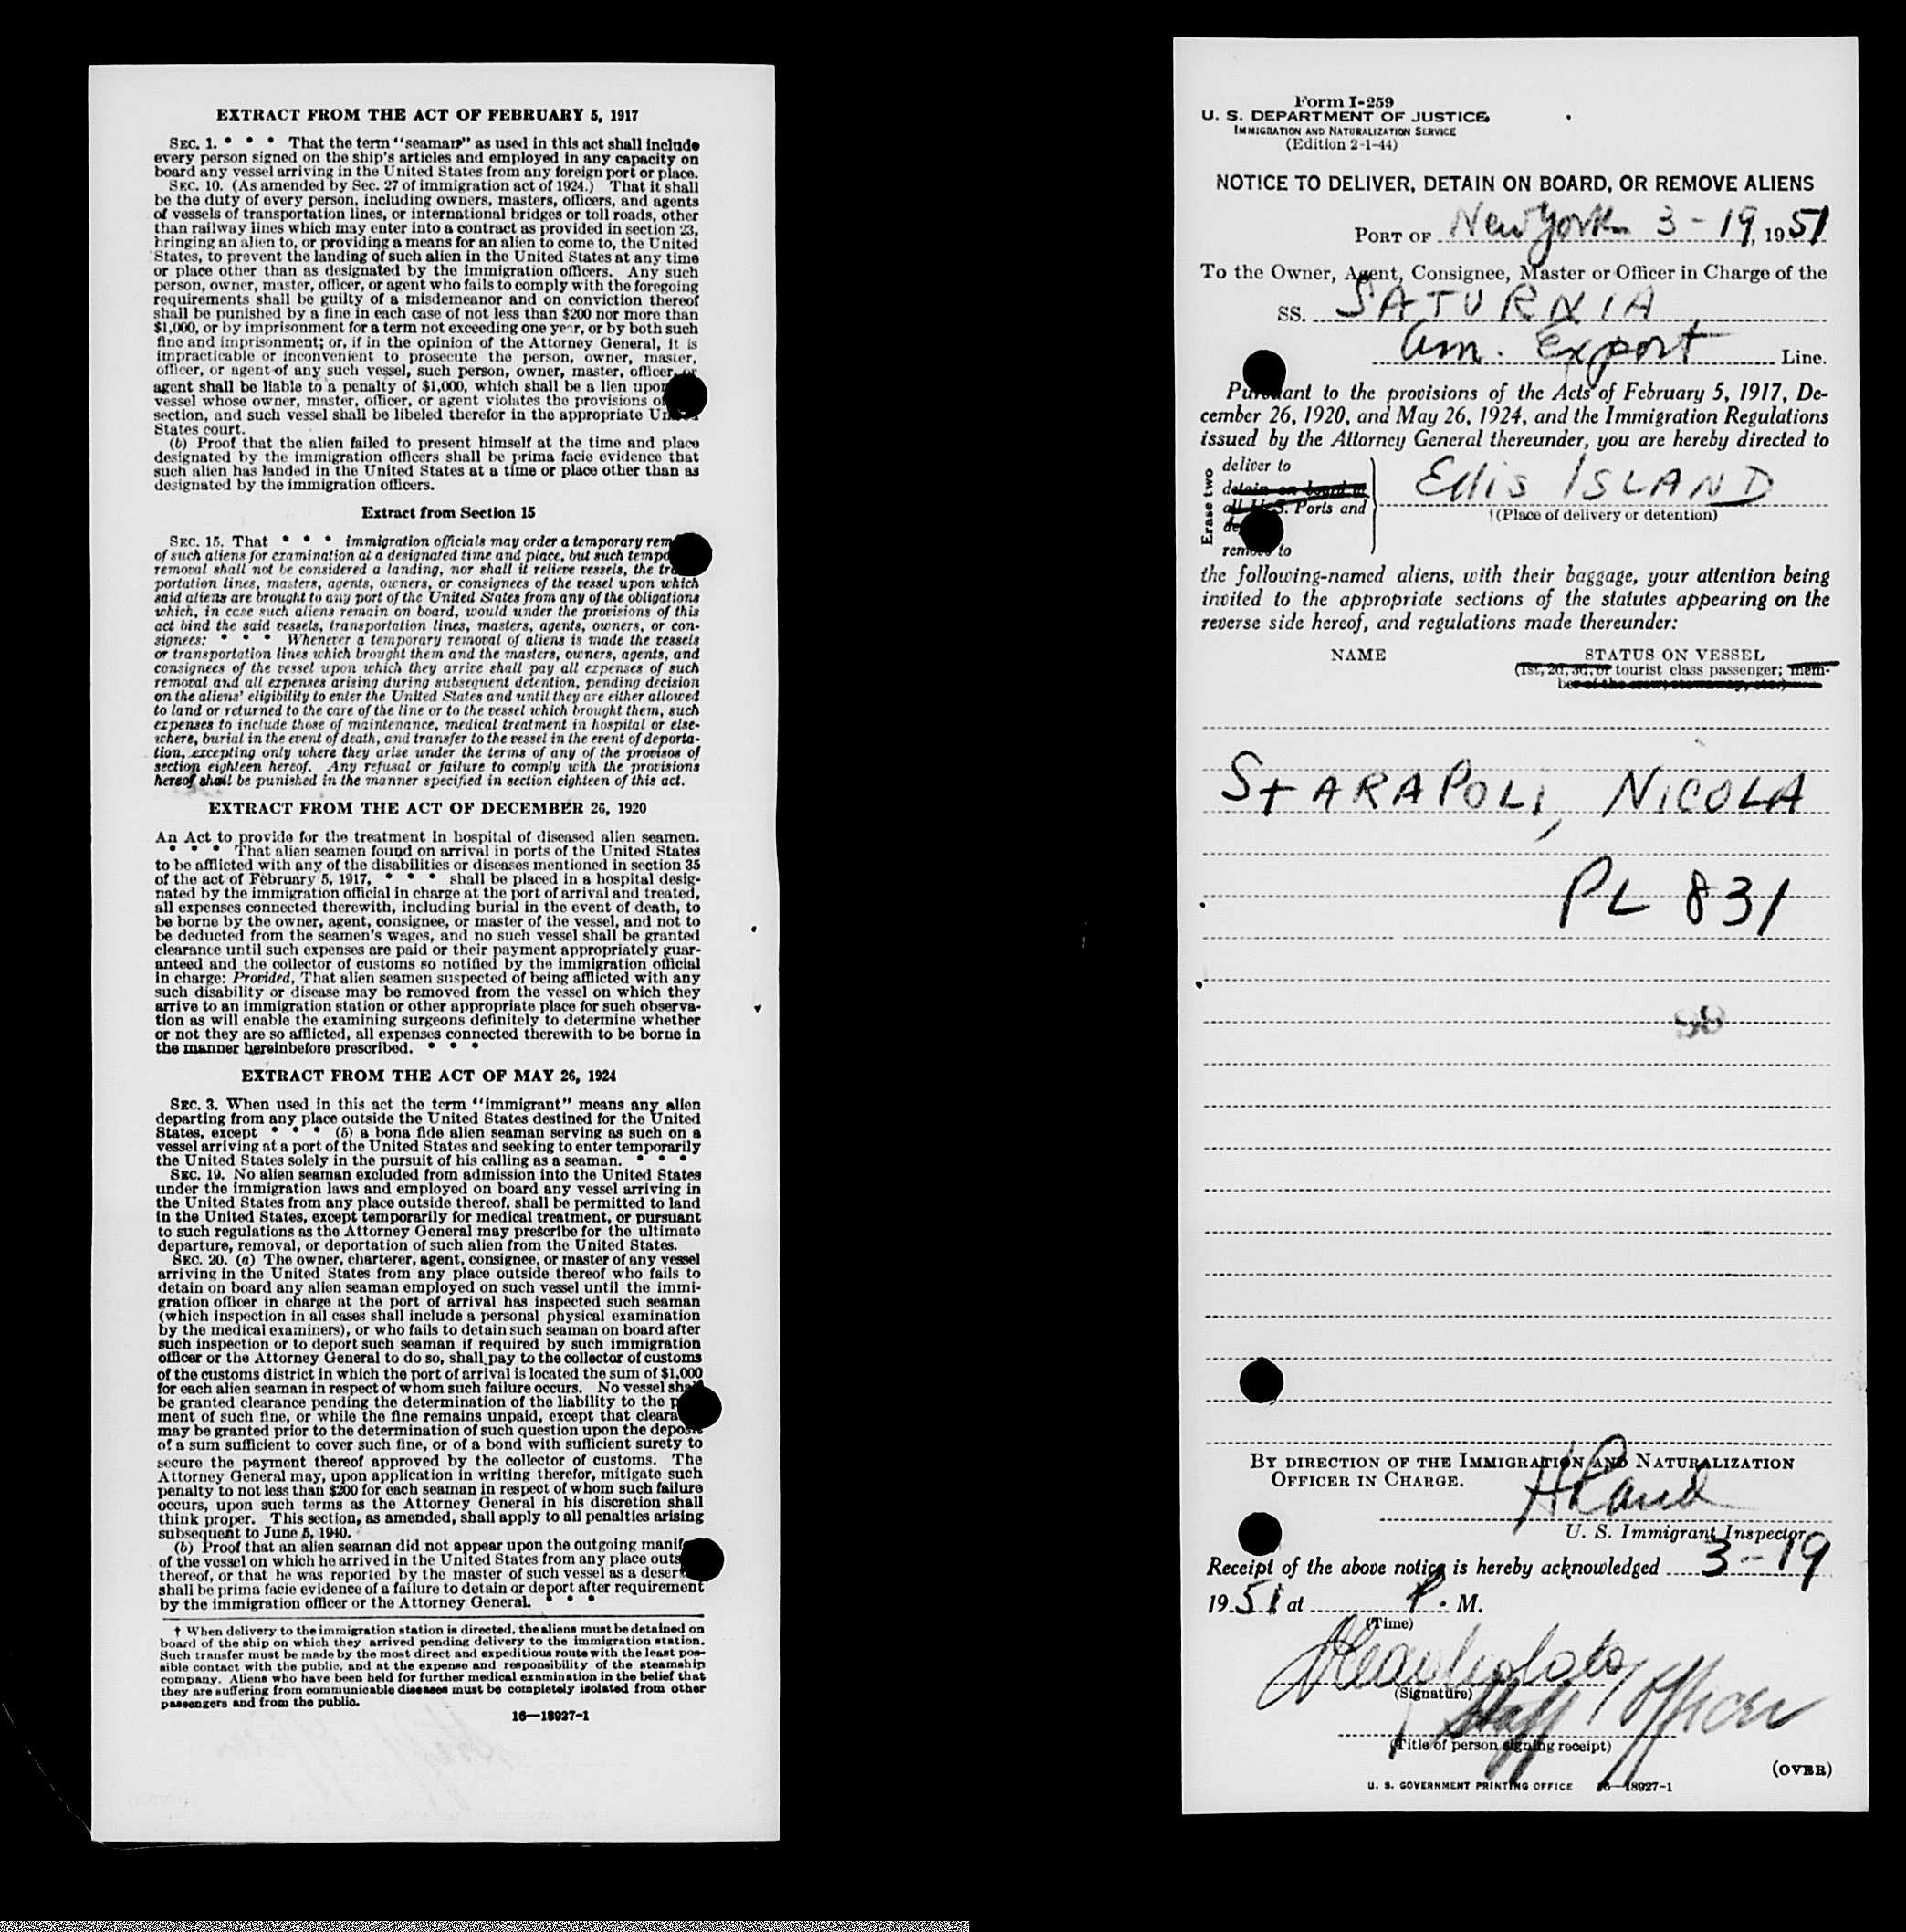 EXTRACT FROM THE ACT OF FEBRUARY 5, 1917
SEC. 1. * * * That the term "seaman" as used in this act shall include
every person signed on the ship's articles and employed in any capacity on
board any vessel arriving in the United States from any foreign port or place.
SEC. 10. (As amended by Sec. 27 of immigration act of 1924.) That it shall
be the duty of every person, including owners, masters, officers, and agents
of vessels of transportation lines, or international bridges or toll roads, other
than railway lines which may enter into a contract as provided in section 23,
bringing an alien to, or providing a means for an alien to come to, the United
States, to prevent the landing of such alien in the United States at any time
or place other than as designated by the immigration officers. Any such
person, owner, master, officer, or agent who fails to comply with the foregoing
requirements shall be guilty of a misdemeanor and on conviction thereof
shall be punished by a fine in each case of not less than $200 nor more than
$1,000, or by imprisonment for a term not exceeding one year, or by both such
fine and imprisonment; or, if in the opinion of the Attorney General, it is
impracticable or inconvenient to prosecute the person, owner, master,
officer, or agent of any such vessel, such person, owner, master, officer, or
agent shall be liable to a penalty of $1,000, which shall be a lien upon
vessel whose owner, master, officer, or agent violates the provisions of
section, and such vessel shall be libeled therefor in the appropriate United
States court.
(b) Proof that the alien failed to present himself at the time and place
designated by the immigration officers shall be prima facie evidence that
such alien has landed in the United States at a time or place other than as
designated by the immigration officers.
Extract from Section 15
SEC. 15. That * * * immigration officials may order a temporary rem
of such aliens for examination at a designated time and place, but such tempo
removal shall not be considered a landing, nor shall it relieve vessels, the tra
portation lines, masters, agents, owners, or consignees of the vessel upon which
said aliens are brought to any port of the United States from any of the obligations
which, in case such aliens remain on board, would under the provisions of this
act bind the said vessels, transportation lines, masters, agents, owners, or con-
signees: * * * Whenever a temporary removal of aliens is made the vessels
or transportation lines which brought them and the masters, owners, agents, and
consignees of the vessel upon which they arrive shall pay all expenses of such
removal and all expenses arising during subsequent detention, pending decision
on the aliens' eligibility to enter the United States and until they are either allowed
to land or returned to the care of the line or to the vessel which brought them, such
expenses to include those of maintenance, medical treatment in hospital or else-
where, burial in the event of death, and transfer to the vessel in the event of deporta-
tion, excepting only where they arise under the terms of any of the provisos of
section eighteen hereof. Any refusal or failure to comply with the provisions
hereof shall be punished in the manner specified in section eighteen of this act.
EXTRACT FROM THE ACT OF DECEMBER 26, 1920
An Act to provide for the treatment in hospital of diseased alien seamen.
* * * That alien seamen found on arrival in ports of the United States
to be afflicted with any of the disabilities or diseases mentioned in section 35
of the act of February 5, 1917, * * * shall be placed in a hospital desig-
nated by the immigration official in charge at the port of arrival and treated,
all expenses connected therewith, including burial in the event of death, to
be borne by the owner, agent, consignee, or master of the vessel, and not to
be deducted from the seamen's wages, and no such vessel shall be granted
clearance until such expenses are paid or their payment appropriately guar-
anteed and the collector of customs so notified by the immigration official
in charge: Provided, That alien seamen suspected of being afflicted with any
such disability or disease may be removed from the vessel on which they
arrive to an immigration station or other appropriate place for such observa-
tion as will enable the examining surgeons definitely to determine whether
or not they are so afflicted, all expenses connected therewith to be borne in
the manner hereinbefore prescribed. * * *
EXTRACT FROM THE ACT OF MAY 26, 1924
SEC. 3. When used in this act the term "immigrant" means any alien
departing from any place outside the United States destined for the United
States, except * * * (5) a bona fide alien seaman serving as such on a
vessel arriving at a port of the United States and seeking to enter temporarily
the United States solely in the pursuit of his calling as a seaman. * * *
SEC. 19. No alien seaman excluded from admission into the United States
under the immigration laws and employed on board any vessel arriving in
the United States from any place outside thereof, shall be permitted to land
in the United States, except temporarily for medical treatment, or pursuant
to such regulations as the Attorney General may prescribe for the ultimate
departure, removal, or deportation of such alien from the United States.
SEC. 20. (a) The owner, charterer, agent, consignee, or master of any vessel
arriving in the United States from any place outside thereof who fails to
detain on board any alien seaman employed on such vessel until the immi-
gration officer in charge at the port of arrival has inspected such seaman
(which inspection in all cases shall include a personal physical examination
by the medical examiners), or who fails to detain such seaman on board after
such inspection or to deport such seaman if required by such immigration
officer or the Attorney General to do so, shall pay to the collector of customs
of the customs district in which the port of arrival is located the sum of $1,000
for each alien seaman in respect of whom such failure occurs. No vessel shall
be granted clearance pending the determination of the liability to the p
ment of such fine, or while the fine remains unpaid, except that cleara
may be granted prior to the determination of such question upon the deposit
of a sum sufficient to cover such fine, or of a bond with sufficient surety to
secure the payment thereof approved by the collector of customs. The
Attorney General may, upon application in writing therefor, mitigate such
penalty to not less than $200 for each seaman in respect of whom such failure
occurs, upon such terms as the Attorney General in his discretion shall
think proper. This section, as amended, shall apply to all penalties arising
subsequent to June 5, 1940.
(b) Proof that an alien seaman did not appear upon the outgoing manif
of the vessel on which he arrived in the United States from any place outs
thereof, or that he was reported by the master of such vessel as a deser
shall be prima facie evidence of a failure to detain or deport after requirement
by the immigration officer or the Attorney General. * * *
† When delivery to the immigration station is directed, the aliens must be detained on
board of the ship on which they arrived pending delivery to the immigration station.
Such transfer must be made by the most direct and expeditious route with the least pos-
sible contact with the public, and at the expense and responsibility of the steamship
company. Aliens who have been held for further medical examination in the belief that
they are suffering from communicable diseases must be completely isolated from other
passengers and from the public.
16—18927-1
Form I-259
U. S. DEPARTMENT OF JUSTICE
IMMIGRATION AND NATURALIZATION SERVICE
(Edition 2-1-44)
NOTICE TO DELIVER, DETAIN ON BOARD, OR REMOVE ALIENS
PORT OF New York 3-19, 1951
To the Owner, Agent, Consignee, Master or Officer in Charge of the
SS. SATURNIA
Am. Export Line.
Pursuant to the provisions of the Acts of February 5, 1917, De-
cember 26, 1920, and May 26, 1924, and the Immigration Regulations
issued by the Attorney General thereunder, you are hereby directed to
Erase two
deliver to
detain on board at
all U.S. Ports and
remove to
Ellis ISLAND
†(Place of delivery or detention)
the following-named aliens, with their baggage, your attention being
invited to the appropriate sections of the statutes appearing on the
reverse side hereof, and regulations made thereunder:
NAME STATUS ON VESSEL
(1st, 2d, 3d, or tourist class passenger; mem-
ber of the crew, stowaway, etc.)
StARAPOLI, NICOLA
PL 831
BY DIRECTION OF THE IMMIGRATION AND NATURALIZATION
OFFICER IN CHARGE.
U. S. Immigrant Inspector.
Receipt of the above notice is hereby acknowledged 3-19
1951 at P. M.
(Time)
(Signature)
Staff Officer
(Title of person signing receipt)
(OVER)
U. S. GOVERNMENT PRINTING OFFICE 16—18927-1